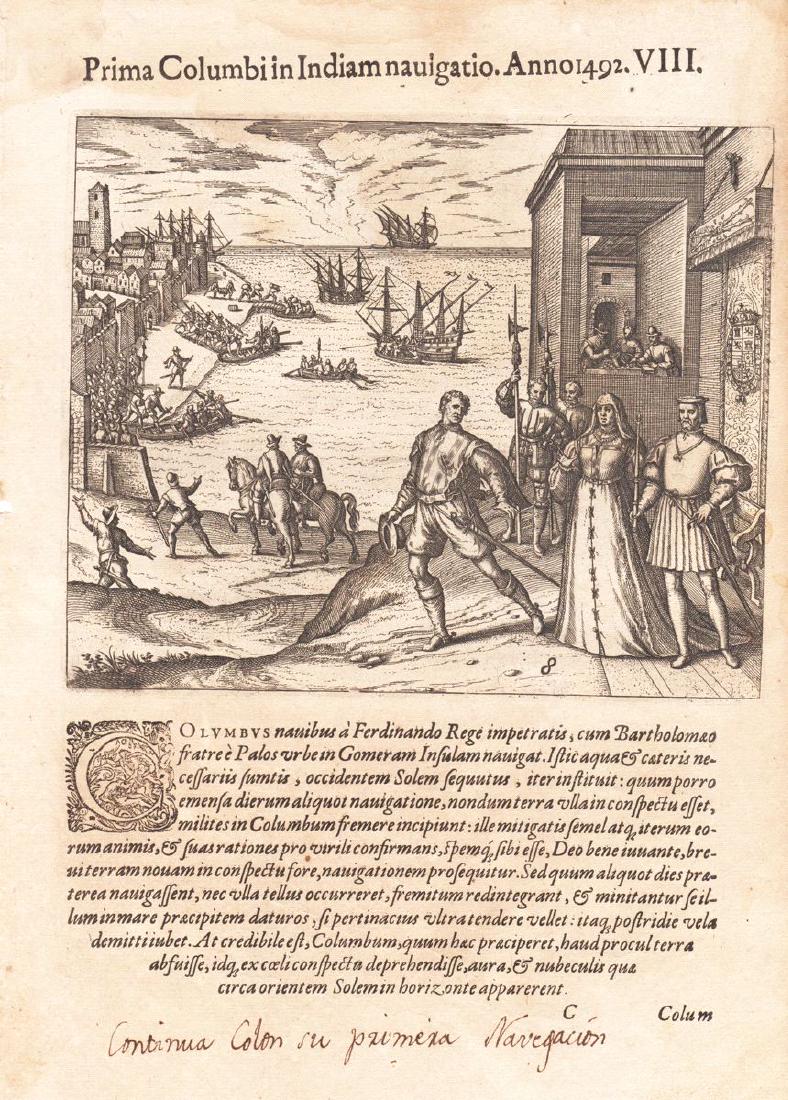 Prima Columbi in Indiam nauigatio. Anno 1492. VIII.
8
COLVMBVS nauibus à Ferdinando Rege impetratis, cum Bartholomæo
fratre è Palos vrbe in Gomeram Insulam nauigat. Istic aqua & cæteris ne-
cessariis sumtis, occidentem Solem sequutus, iter instituit: quum porro
emensa dierum aliquot nauigatione, nondum terra vlla in conspectu esset,
milites in Columbum fremere incipiunt: ille mitigatis semel atq́; iterum eo-
rum animis, & suas rationes pro virili confirmans, spemq́; sibi esse, Deo bene iuuante, bre-
ui terram nouam in conspectu fore, nauigationem prosequitur. Sed quum aliquot dies præ-
terea nauigassent, nec vlla tellus occurreret, fremitum redintegrant, & minitantur se il-
lum in mare præcipitem daturos, si pertinacius vltra tendere vellet: itaq; postridie vela
demitti iubet. At credibile est, Columbum, quum hæc præciperet, haud procul terra
abfuisse, idq; ex cœli conspectu deprehendisse, aura, & nubeculis quæ
circa orientem Solem in horizonte apparerent.
C Colum
Continua Colon su primera Navegación